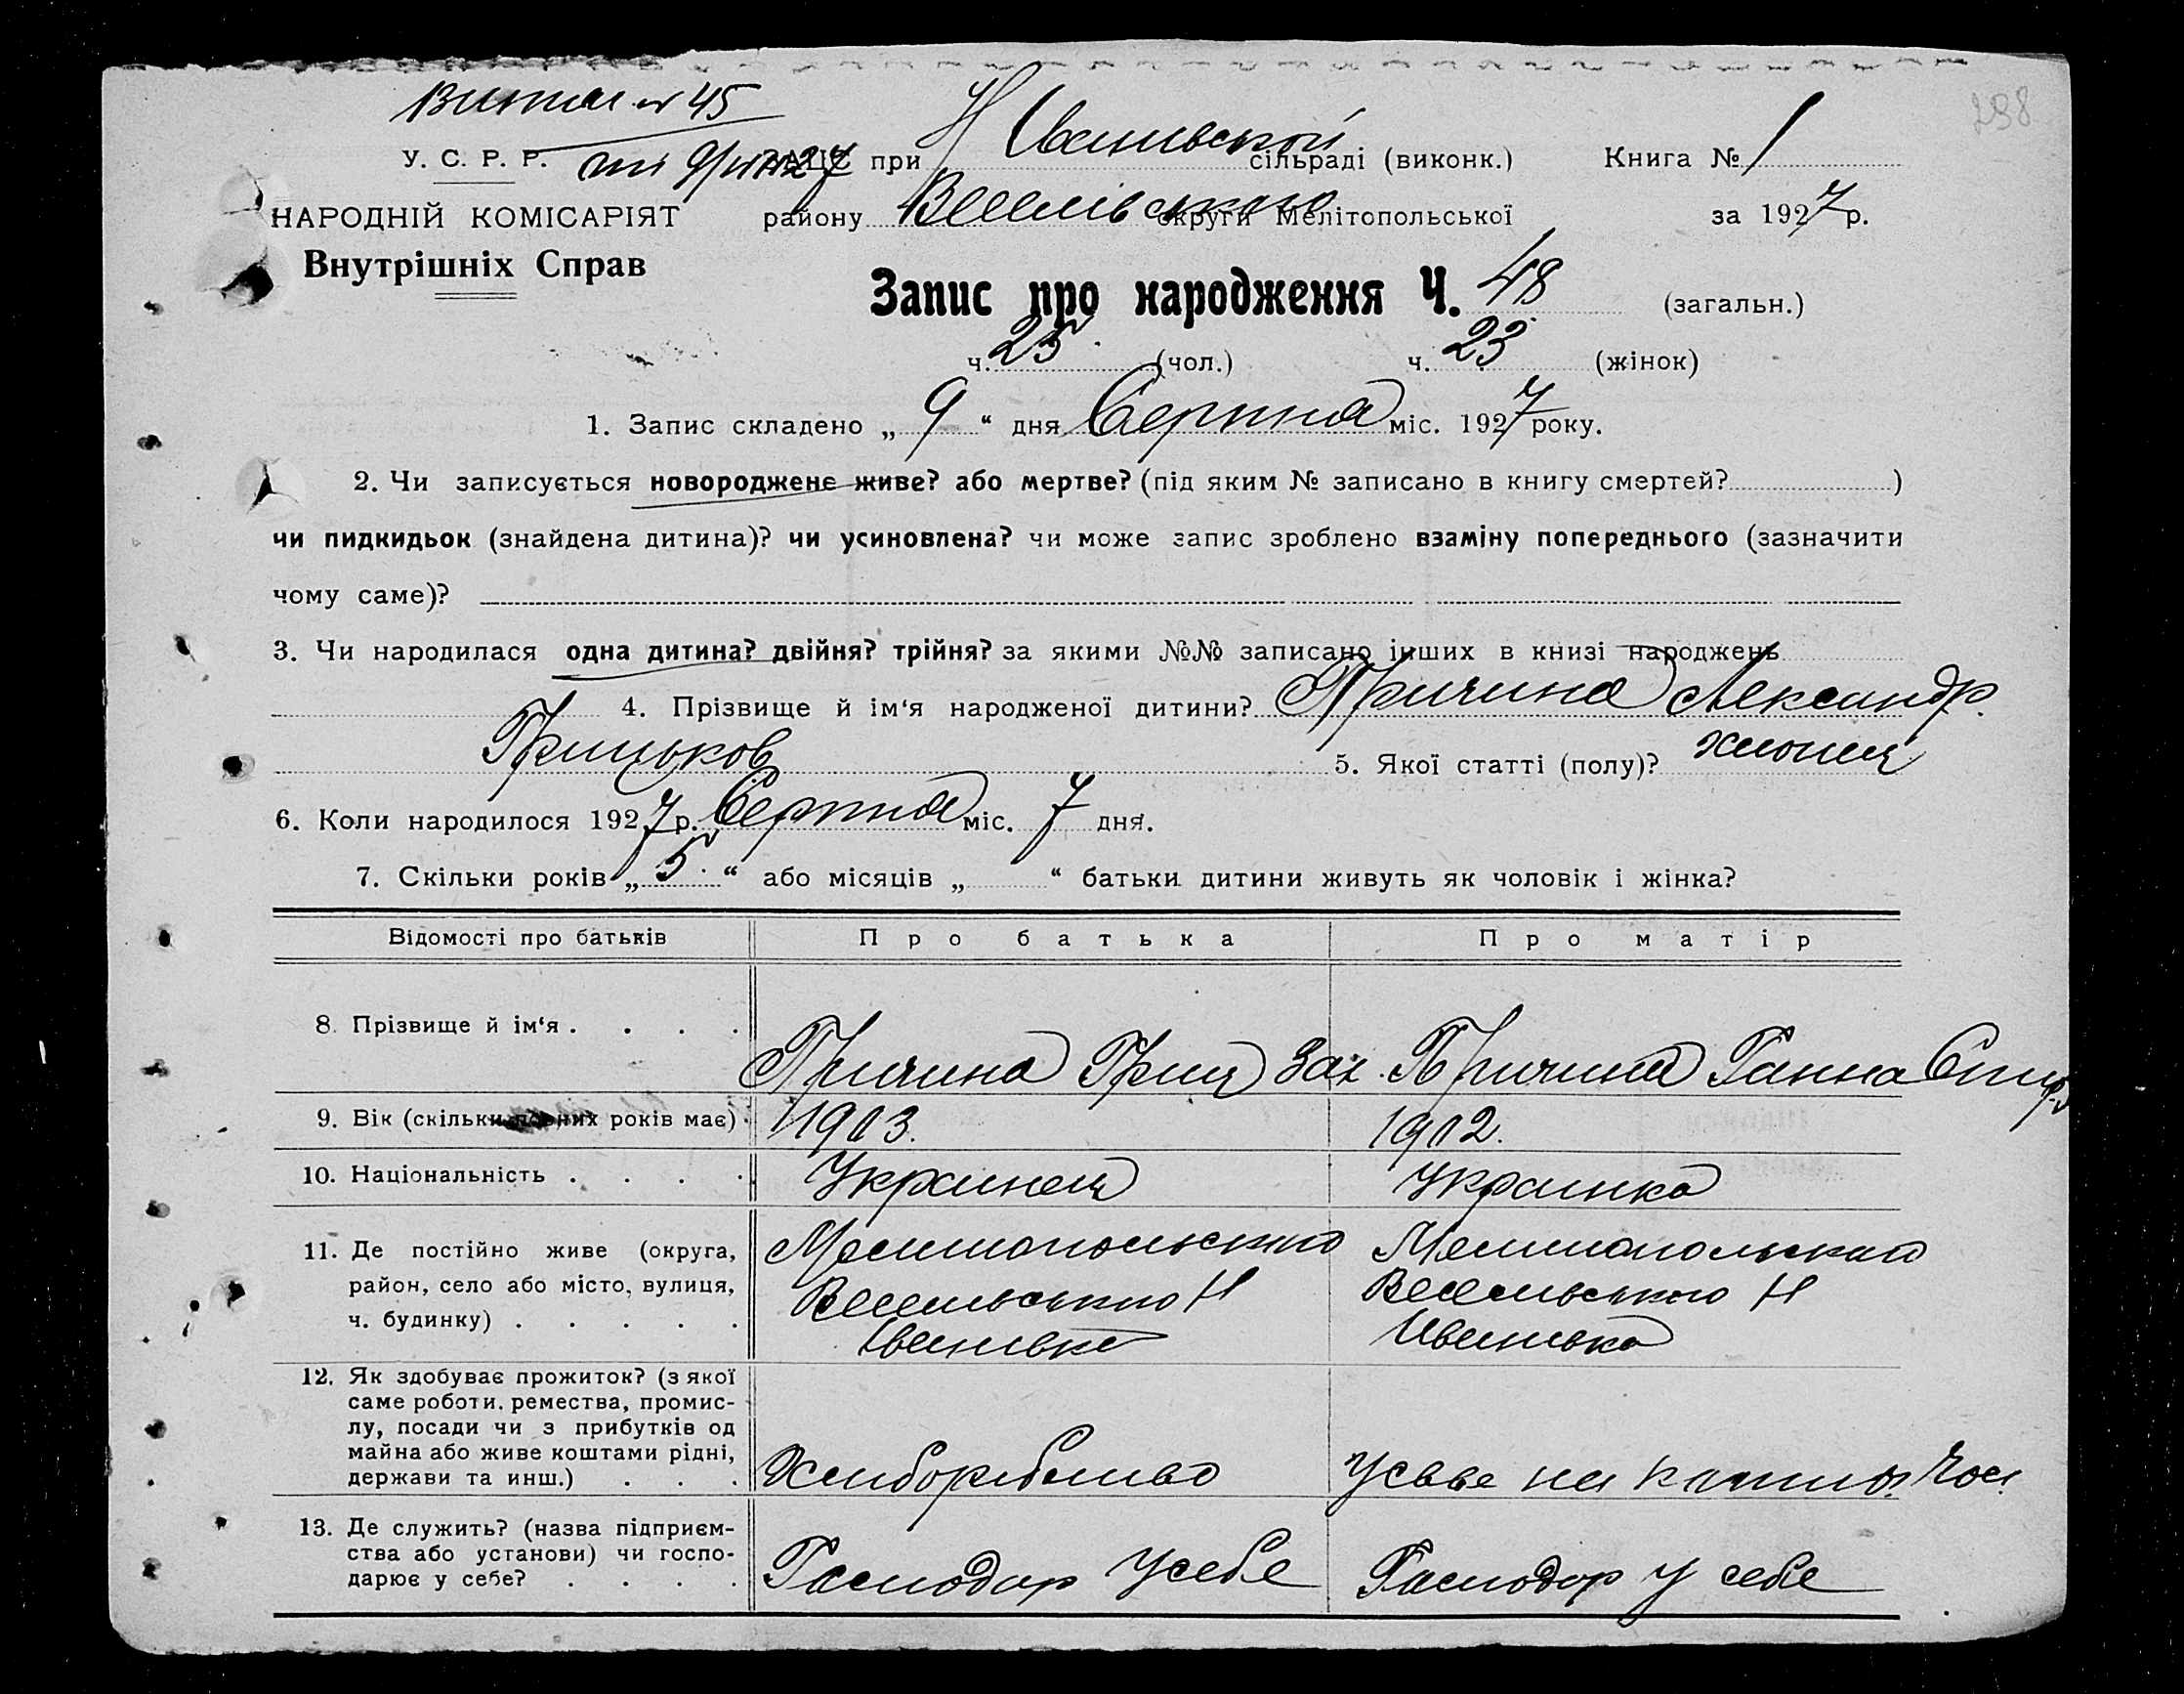 298
Витяг № 45
У. С. Р. Р. ЗАГС при Н Іванивськой сільраді (виконк.) Книга № 1
НАРОДНІЙ КОМІСАРІЯТ району Веселівського округи Мелітопольської за 1927 р.
Внутрішніх Справ
Запис про народження Ч. 48 (загальн.)
ч. 25 (чол.) ч. 23 (жінок)
1. Запис складено „ 9 “ дня Серпня міс. 1927 року.
2. Чи записується новороджене живе? або мертве? (під яким № записано в книгу смертей? )
чи пидкидьок (знайдена дитина)? чи усиновлена? чи може запис зроблено взаміну попереднього (зазначити
чому саме)?
3. Чи народилася одна дитина? двійня? трійня? за якими №№ записано інших в книзі народжень
4. Прізвище й ім‘я народженої дитини? Причина Александр
Грицьков 5. Якої статті (полу)? хлопец
6. Коли народилося 1927 р. Серпня міс. 7 дня.
7. Скільки років „ 5 “ або місяців „ “ батьки дитини живуть як чоловік і жінка?
Відомості про батьків Про батька Про матір
8. Прізвище й ім‘я . . . . Причина Гриц Зах. Причина Ганна
9. Вік (скільки повних років має) 1903. 1902.
10. Національність . . . . Украинец Украинка
11. Де постійно живе (округа, Мелитопольского Мелитопольского
район, село або місто, вулиця, Весельського Н Весельського Н
ч. будинку) . . . . . Иванивка Иванивка
12. Як здобуває прожиток? (з якої
саме роботи, ремества, промис-
лу, посади чи з прибутків од
майна або живе коштами рідні,
держави та инш.) . . . Хлиборобство на кошты чол.
13. Де служить? (назва підприєм-
ства або установи) чи госпо-
дарює у себе? . . . . Господар у себе Господар у себе